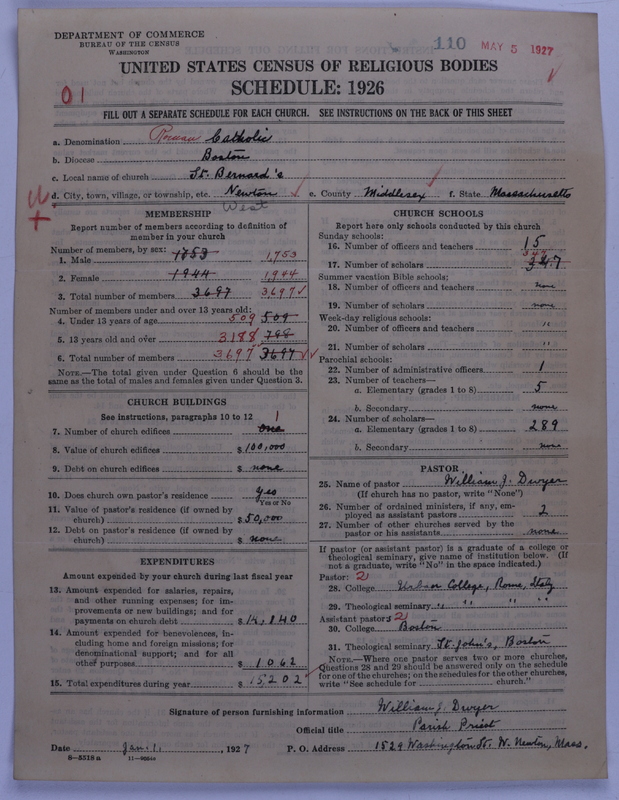 DEPARTMENT OF COMMERCE
BUREAU OF THE CENSUS
WASHINGTON
110 MAY 5 1927
UNITED STATES CENSUS OF RELIGIOUS BODIES
SCHEDULE: 1926
01
FILL OUT A SEPARATE SCHEDULE FOR EACH CHURCH. SEE INSTRUCTIONS ON THE BACK OF THIS SHEET
a. Denomination Roman Catholic
b. Diocese Boston
c. Local name of church St. Bernard's
d. City, town, village, or township, etc. Newton e. County Middlesex f. State Massachusetts
West
MEMBERSHIP
Report number of members according to definition of
member in your church
Number of members, by sex:
1. Male 1753 1,753
2. Female 1944 1,944
3. Total number of members 3697 3697
Number of members under and over 13 years old:
4. Under 13 years of age 509 509
5. 13 years old and over 3188
6. Total number of members 3697 3697
NOTE.—The total given under Question 6 should be
same as the total of males and females given under Question 3.
CHURCH BUILDINGS
See instructions, paragraphs 10 to 12
7. Number of church edifices one 1
8. Value of church edifices $100,000
9. Debt on church edifices $ none
10. Does church own pastor's residence yes
Yes or No
11. Value of pastor's residence (if owned by
church) $50,000
12. Debt on pastor's residence (if owned by
church) $ none
EXPENDITURES
Amount expended by your church during last fiscal year
13. Amount expended for salaries, repairs,
and other running expenses; for im-
provements or new buildings; and for
payments on church debt $14,140
14. Amount expended for benevolences, in-
cluding home and foreign missions; for
denominational support; and for all
other purposes $1062
15. Total expenditures during year $15202
CHURCH SCHOOLS
Report here only schools conducted by this church
Sunday schools:
16. Number of officers and teachers 15
17. Number of scholars 347 347
Summer vacation Bible schools:
18. Number of officers and teachers none
19. Number of scholars none
Week-day religious schools:
20. Number of officers and teachers "
21. Number of scholars "
Parochial schools:
22. Number of administrative officers 1
23. Number of teachers—
a. Elementary (grades 1 to 8) 5
b. Secondary none
24. Number of scholars—
a. Elementary (grades 1 to 8) 289
b. Secondary none
PASTOR
25. Name of pastor William J. Dwyer
(If church has no pastor, write "None")
26. Number of ordained ministers, if any, em-
ployed as assistant pastors 2
27. Number of other churches served by the
pastor or his assistants none
If pastor (or assistant pastor) is a graduate of a college or
theological seminary, give name of institution below. (If
not a graduate, write "No" in the space indicated.)
Pastor: 2
28. College Urban College, Rome, Italy
29. Theological seminary " " " "
Assistant pastors 2
30. College Boston
31. Theological seminary St. John's, Boston
NOTE.—Where one pastor serves two or more churches,
Questions 28 and 29 should be answered only on the schedule
for one of the churches; on the schedules for the other churches,
write "See schedule for church."
Signature of person furnishing information William J. Dwyer
Official title Parish Priest
Date Jan. 1, 1927 P. O. Address 1529 Washington St. W. Newton, Mass.
8—5518 a